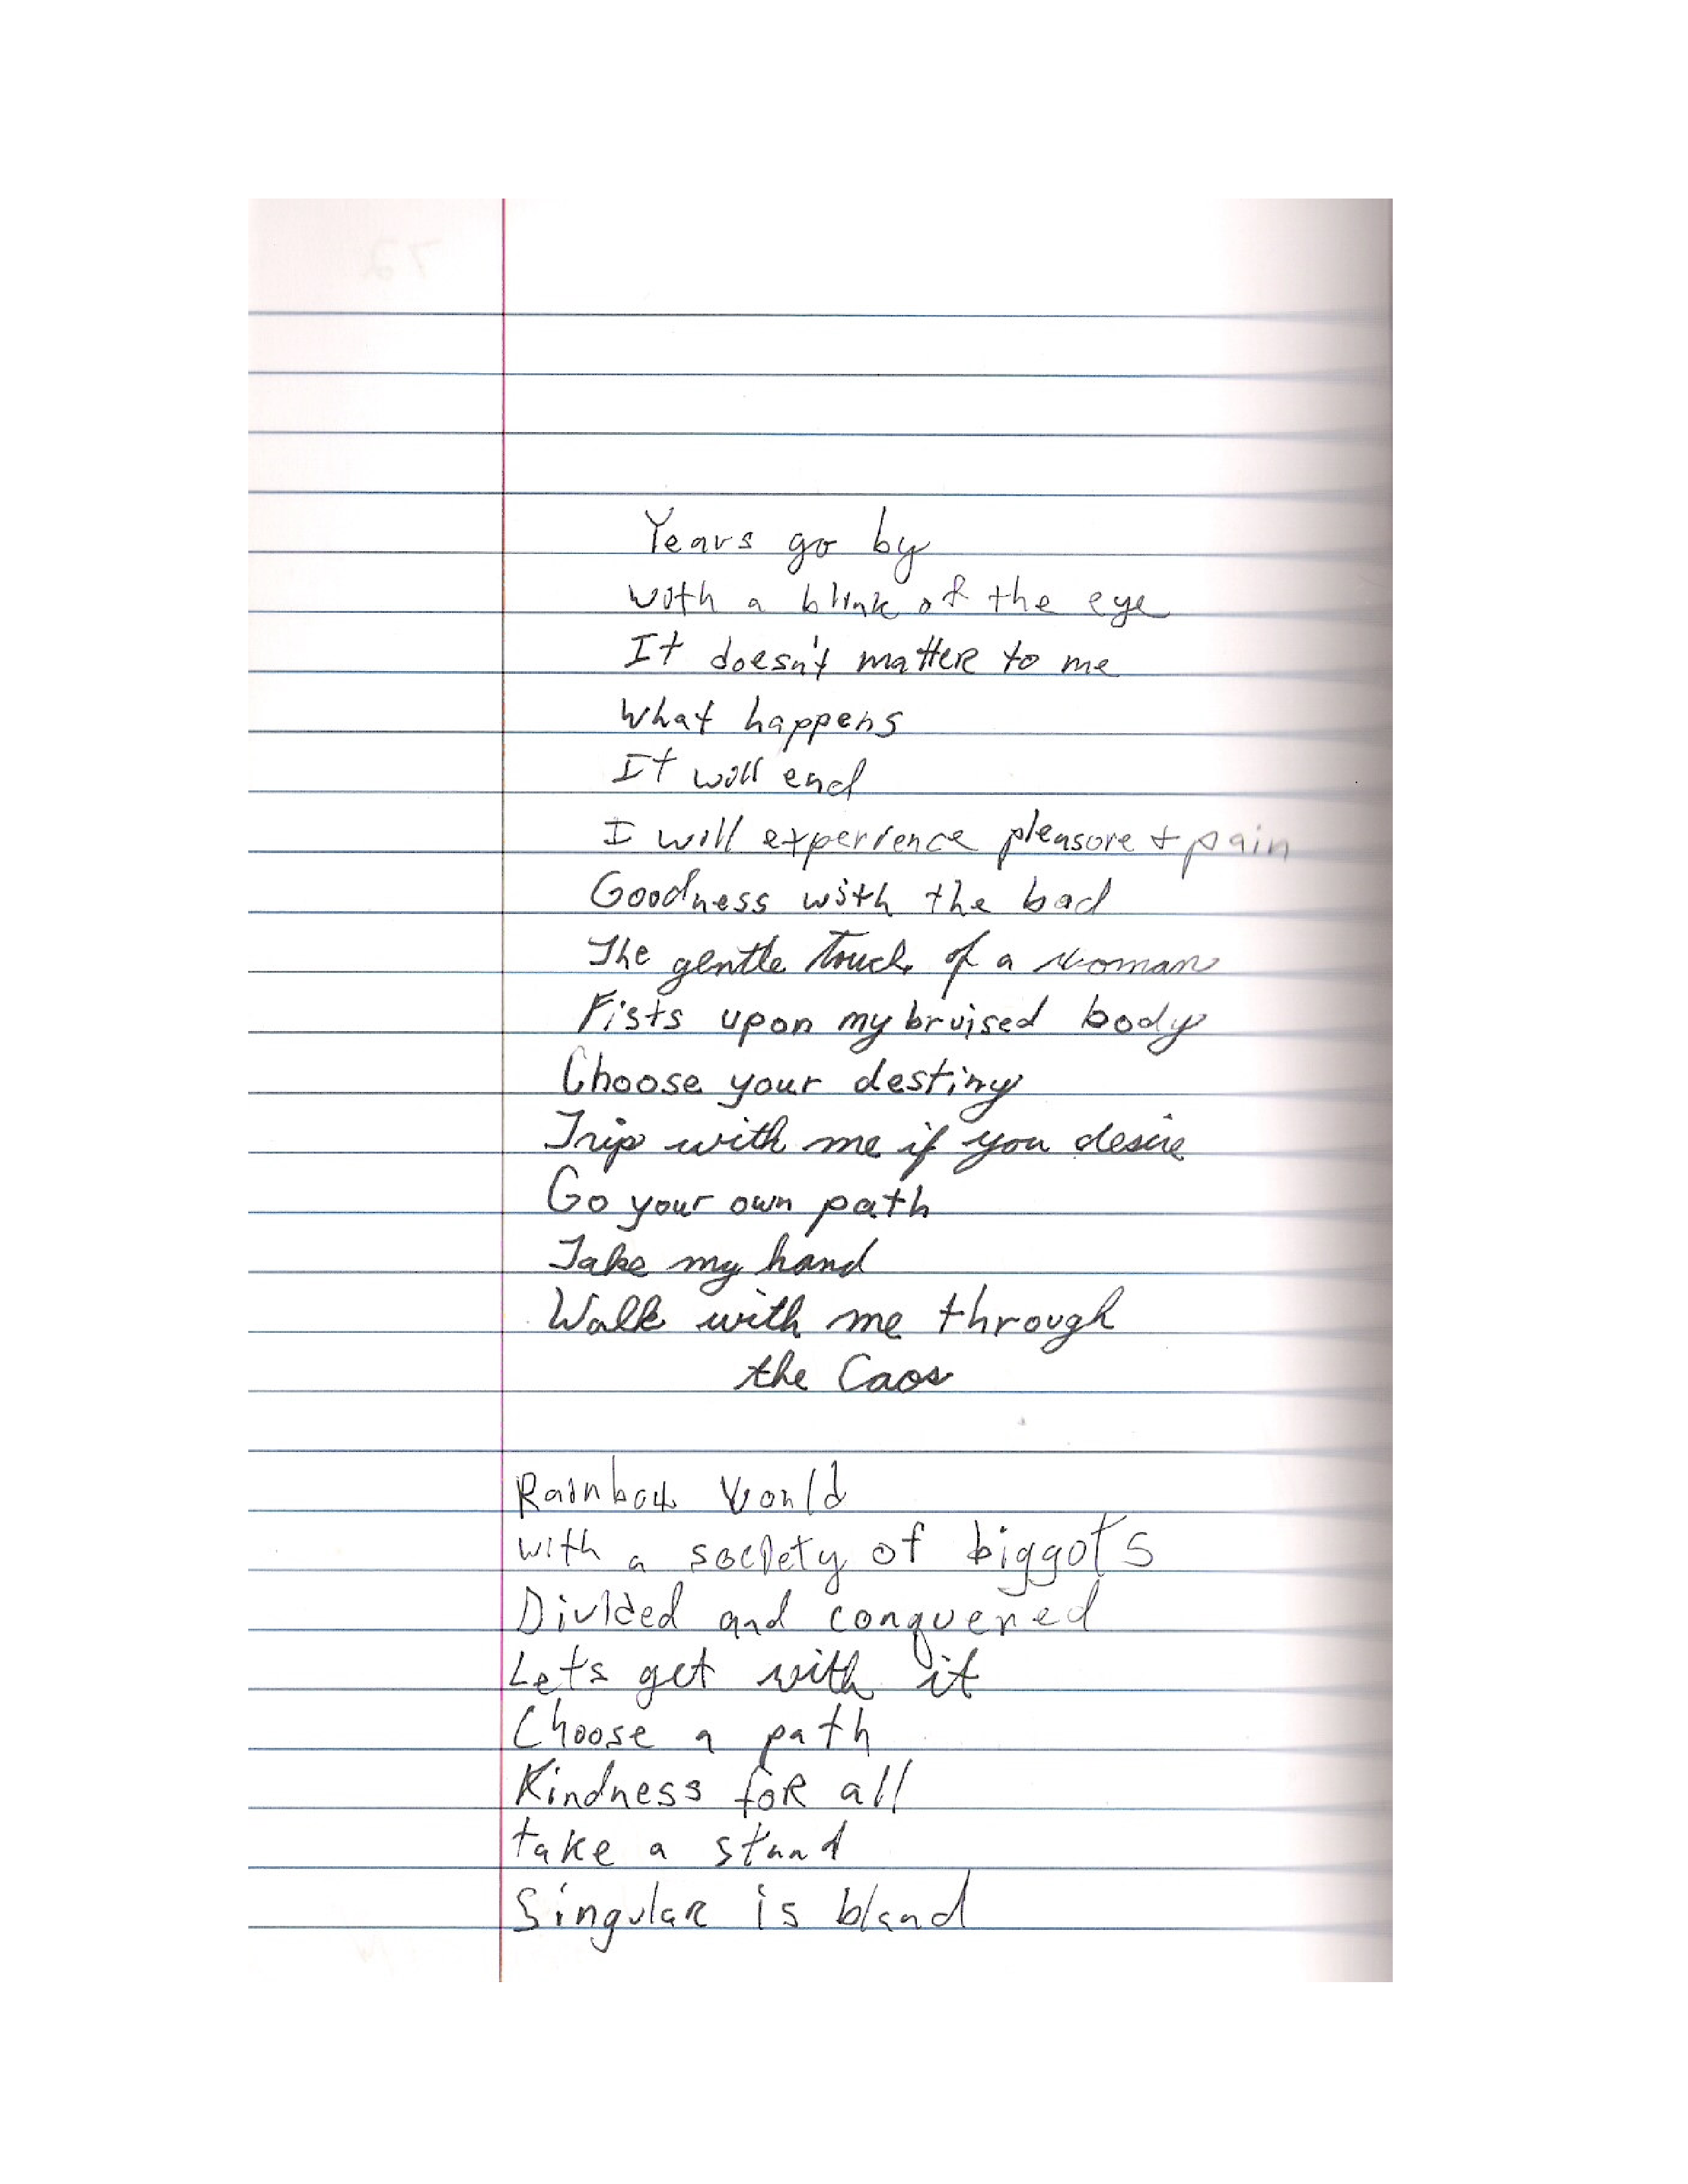 Years go by
with a blink of the eye
It doesn't matter to me
What happens
It will end
I will experience pleasure + pain
Goodness with the bad
The gentle touch of a woman
Fists upon my bruised body
Choose your destiny
Trip with me if you desire
Go your own path
Take my hand
Walk with me through
the Caos
Rainbow World
with a society of biggots
Divided and conquered
Let's get with it
Choose a path
Kindness for all
take a stand
Singular is bland